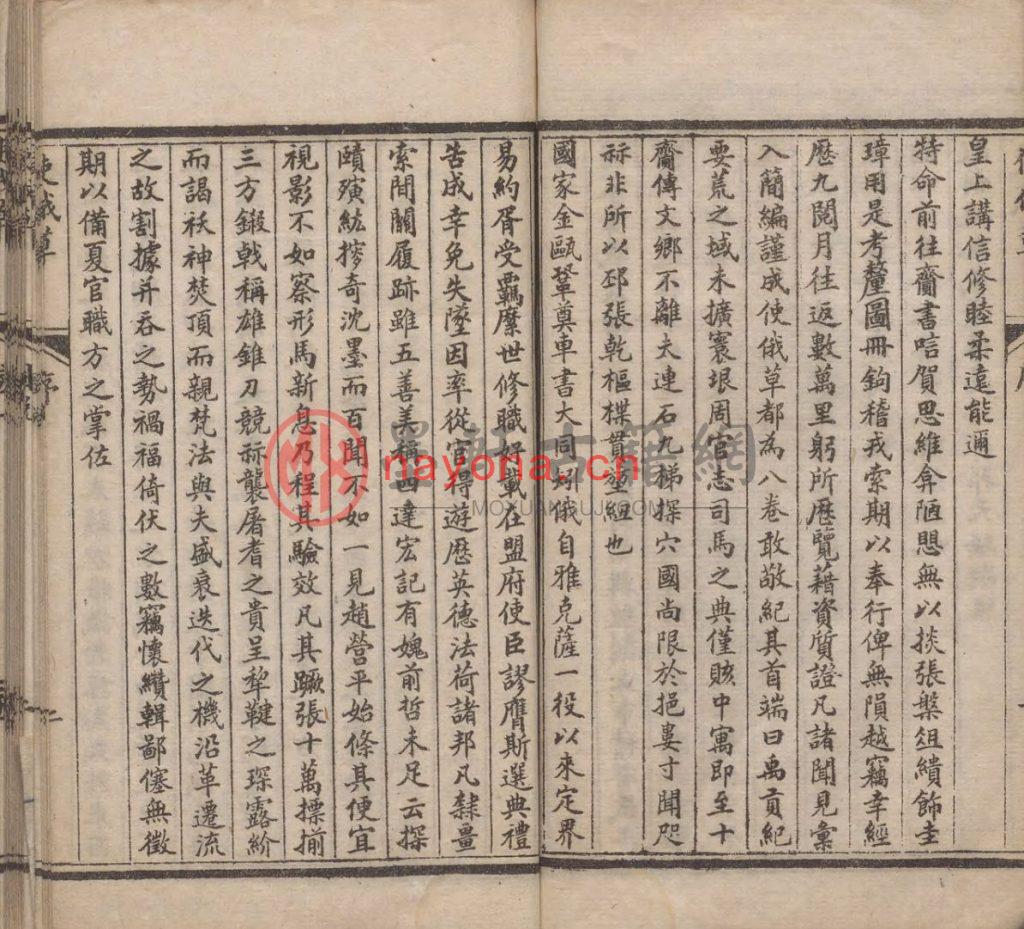 皇上講信修睦柔遠能邇
特命前往齎書唁賀思維弇陋愳無以掞張槃俎繢飾圭
璋用是考釐圖冊鉤稽戎索期以奉行俾無隕越竊幸經
歷九閱月往返數萬里躬所歷覽藉資質證凡諸聞見彙
入簡編謹成使俄草都為八卷敢敬紀其首端曰禹貢紀
要荒之域未擴寰垠周官志司馬之典僅賅中寓即至十
齋傳文鄉不離大連石九梯探穴國尚限於挹婁寸聞咫
尟非所以邳張乾樞楪貫堃紐也
國家金甌鞏奠車書大同矧俄自雅克薩一役以來定界
易約胥受羈縻世修職好載在盟府使臣謬膺斯選典禮
告成幸免失墜因率從官得遊歷英德法荷諸邦凡隸畺
索間關履跡雖五善美稱四達宏記有媿前哲未足云探
賾演紘摛奇沈墨而百聞不如一見趙營平始條其便宜
視影不如察形馬新息乃程其驗效凡其蹶張十萬摽揃
三方鍛戟稱雄錐刀競尟襲屠耆之貴呈犂鞬之琛露紒
而謁祆神焚頂而親梵法與夫盛衰迭代之機沿革遷流
之故割據并吞之勢禍福倚伏之數竊懷纘輯鄙僿無徵
期以備夏官職方之掌佐
使俄草
序
二
墨軒古籍網
nayona.cn
MOXUANGUJI.COM